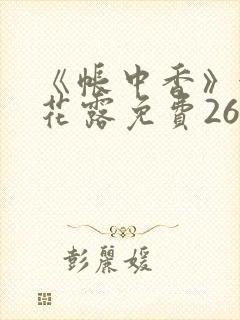 《帐中香》
花露免費26
彭麗媛